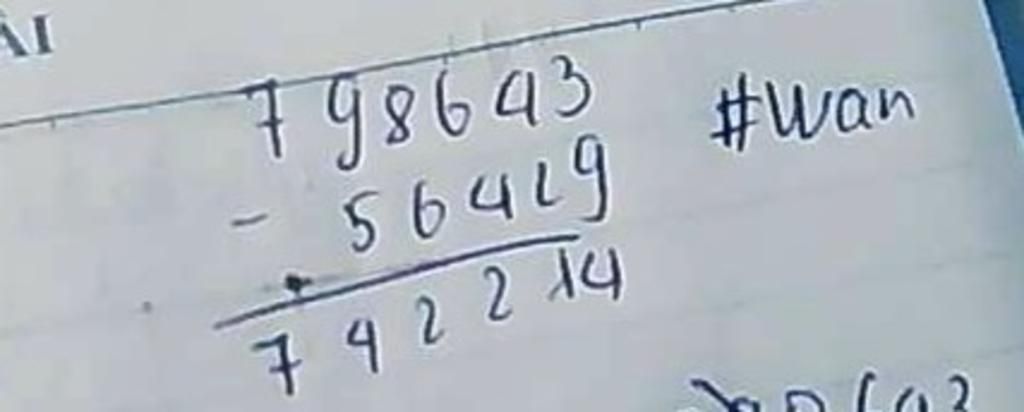 ÀI
798643 #Wan
- 56429
742214